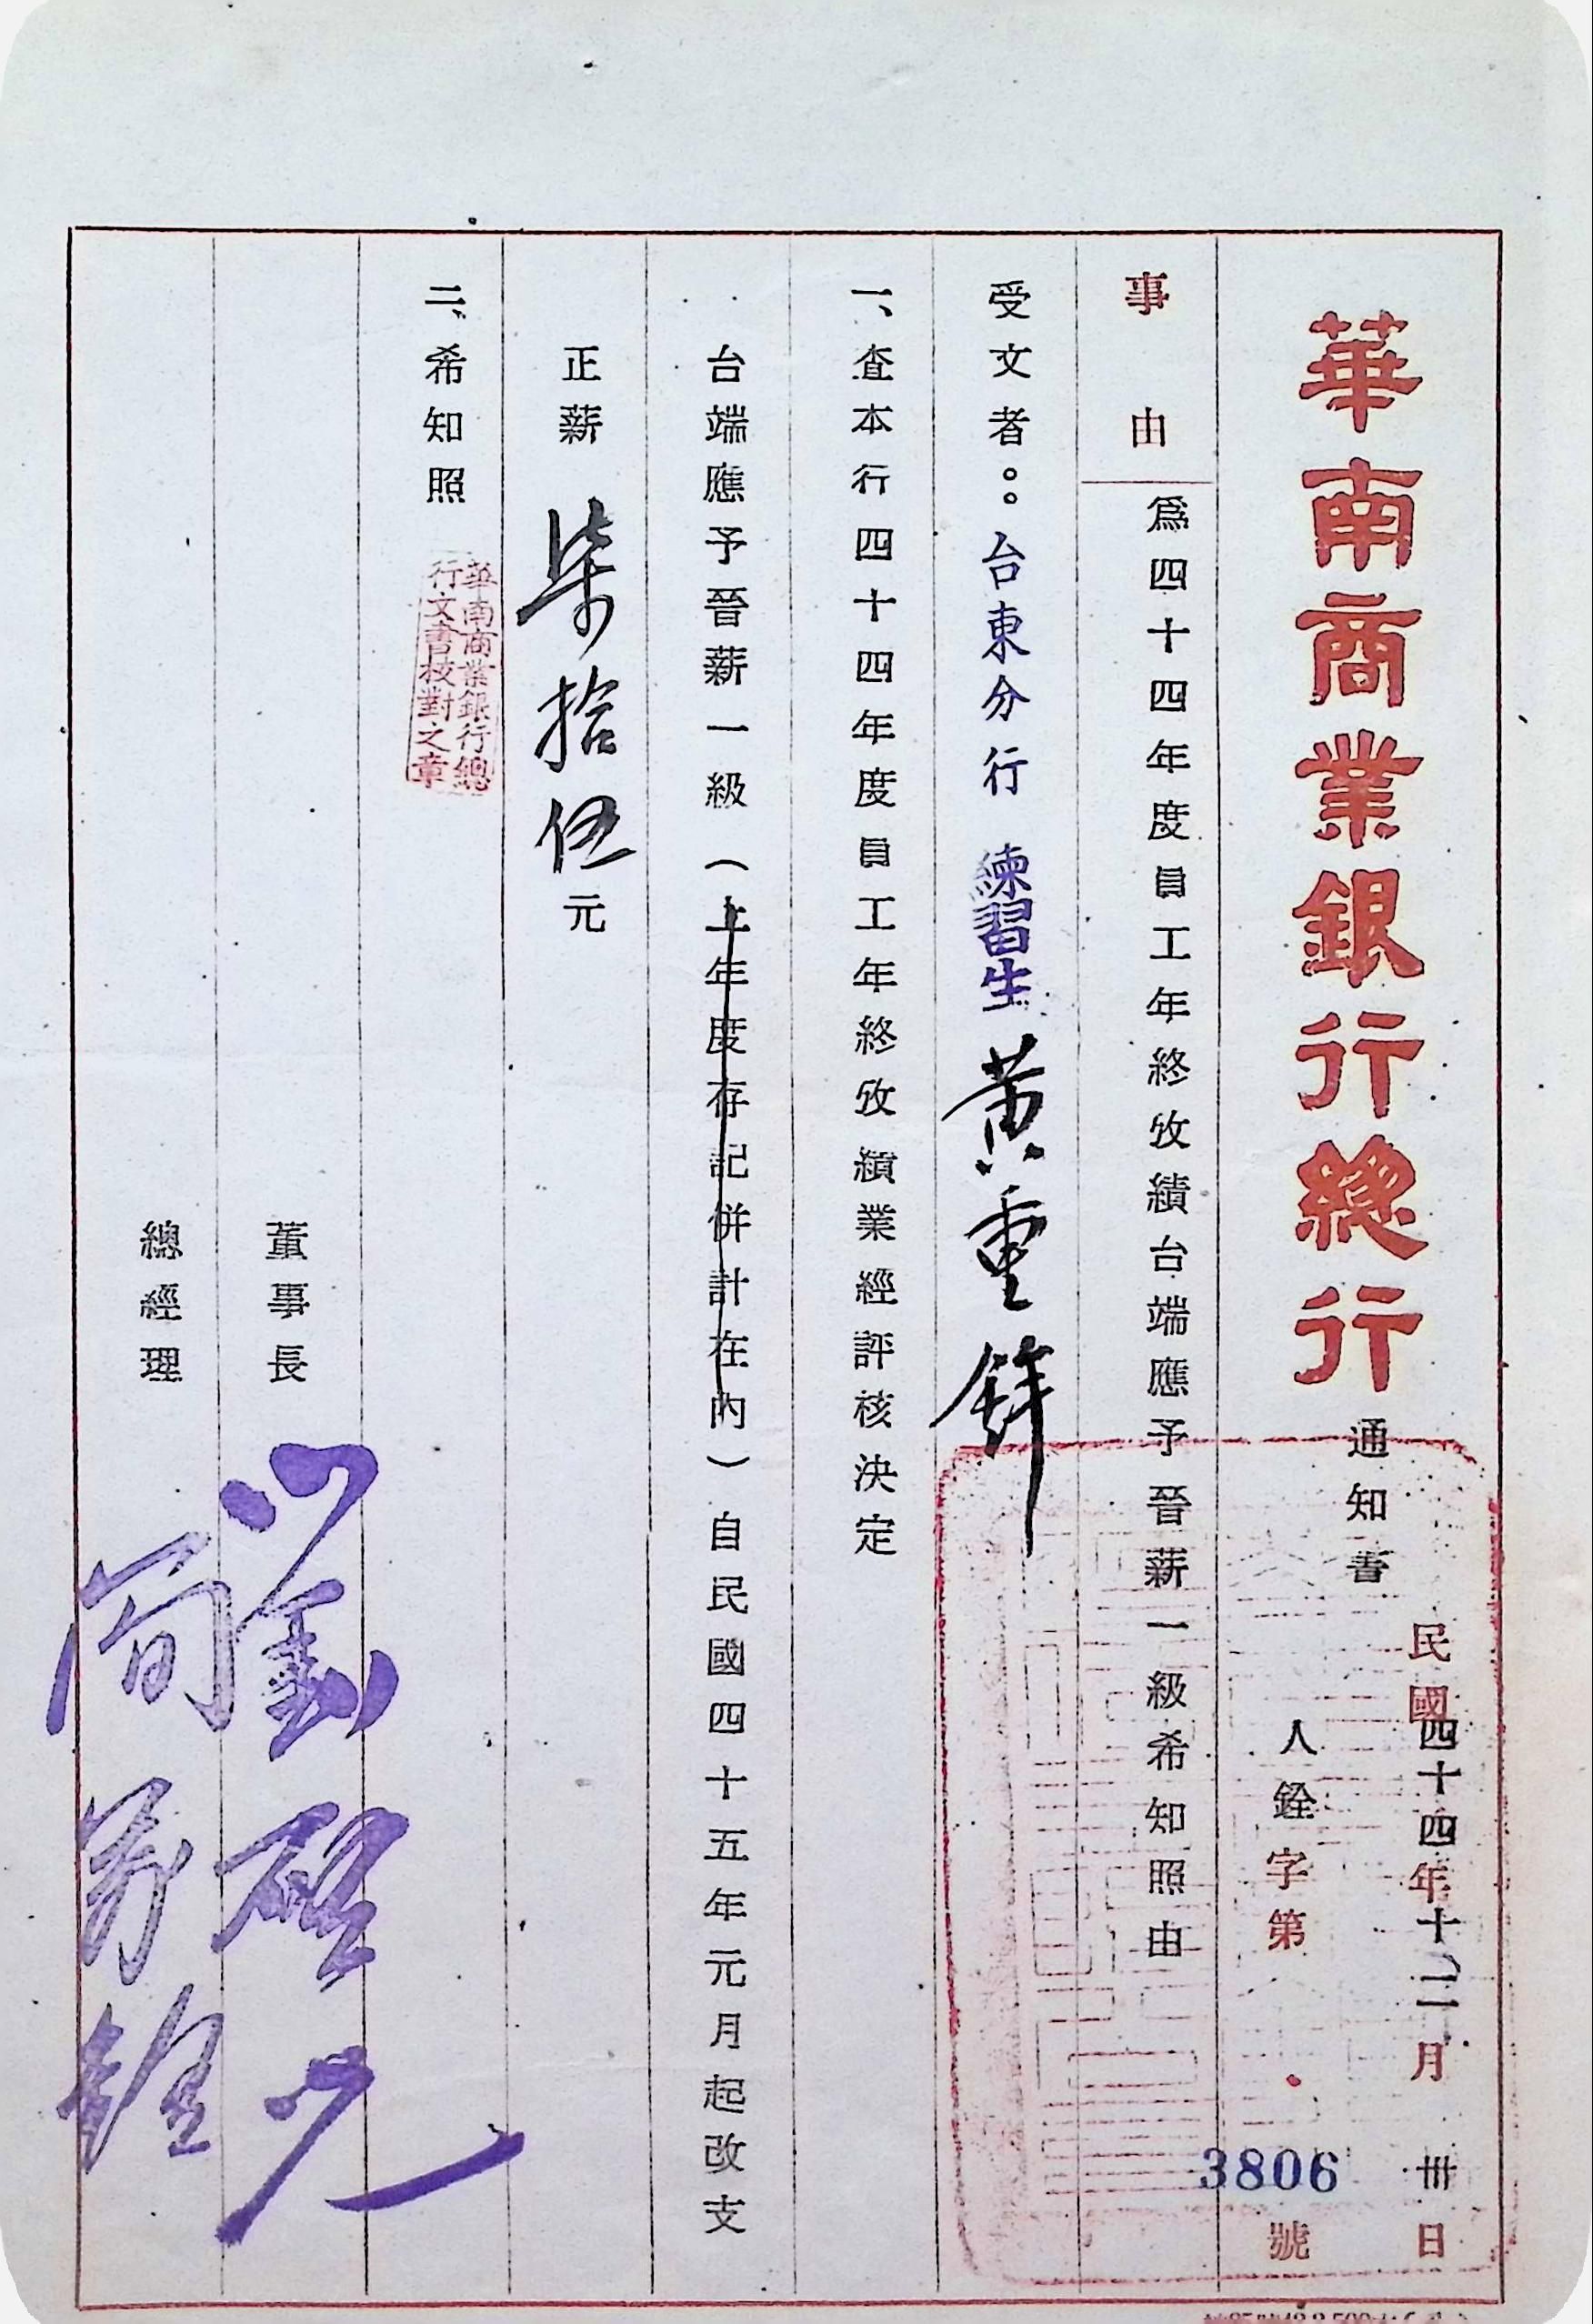 華南商業銀行總行 通知書
民國四十四年十二月卅日
人銓字第3806號
事由 為四十四年度員工年終攷績台端應予晉薪一級希知照由
受文者：台東分行 練習生 黃重鋅
一、查本行四十四年度員工年終攷績業經評核決定
台端應予晉薪一級（上年度存記併計在內）自民國四十五年元月起改支
正薪柒拾伍元
二、希知照
華南商業銀行總
行文書校對之章
董事長 劉啓光
總經理